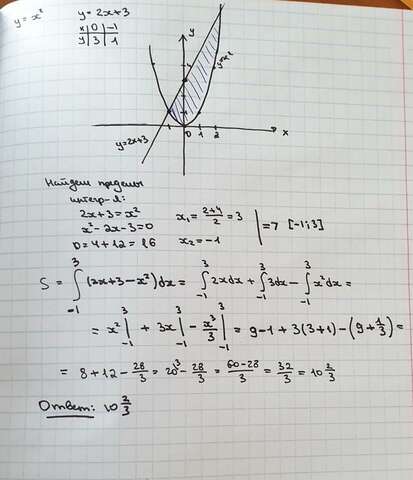 y = x² y = 2x+3
x 0 -1
y 3 1
y
y=x²
y=2x+3
0 1 2 x
Найдем пределы
интегр-я:
2x+3=x²
x²-2x-3=0
D=4+12=16
x₁ = (2+4)/2 = 3
x₂ = -1
=> [-1;3]
S = ∫₋₁³ (2x+3-x²)dx = ∫₋₁³ 2xdx + ∫₋₁³ 3dx - ∫₋₁³ x²dx =
= x² |₋₁³ + 3x |₋₁³ - x³/3 |₋₁³ = 9-1+3(3+1)-(9+1/3) =
= 8+12-28/3 = 20-28/3 = (60-28)/3 = 32/3 = 10 2/3
Ответ: 10 2/3